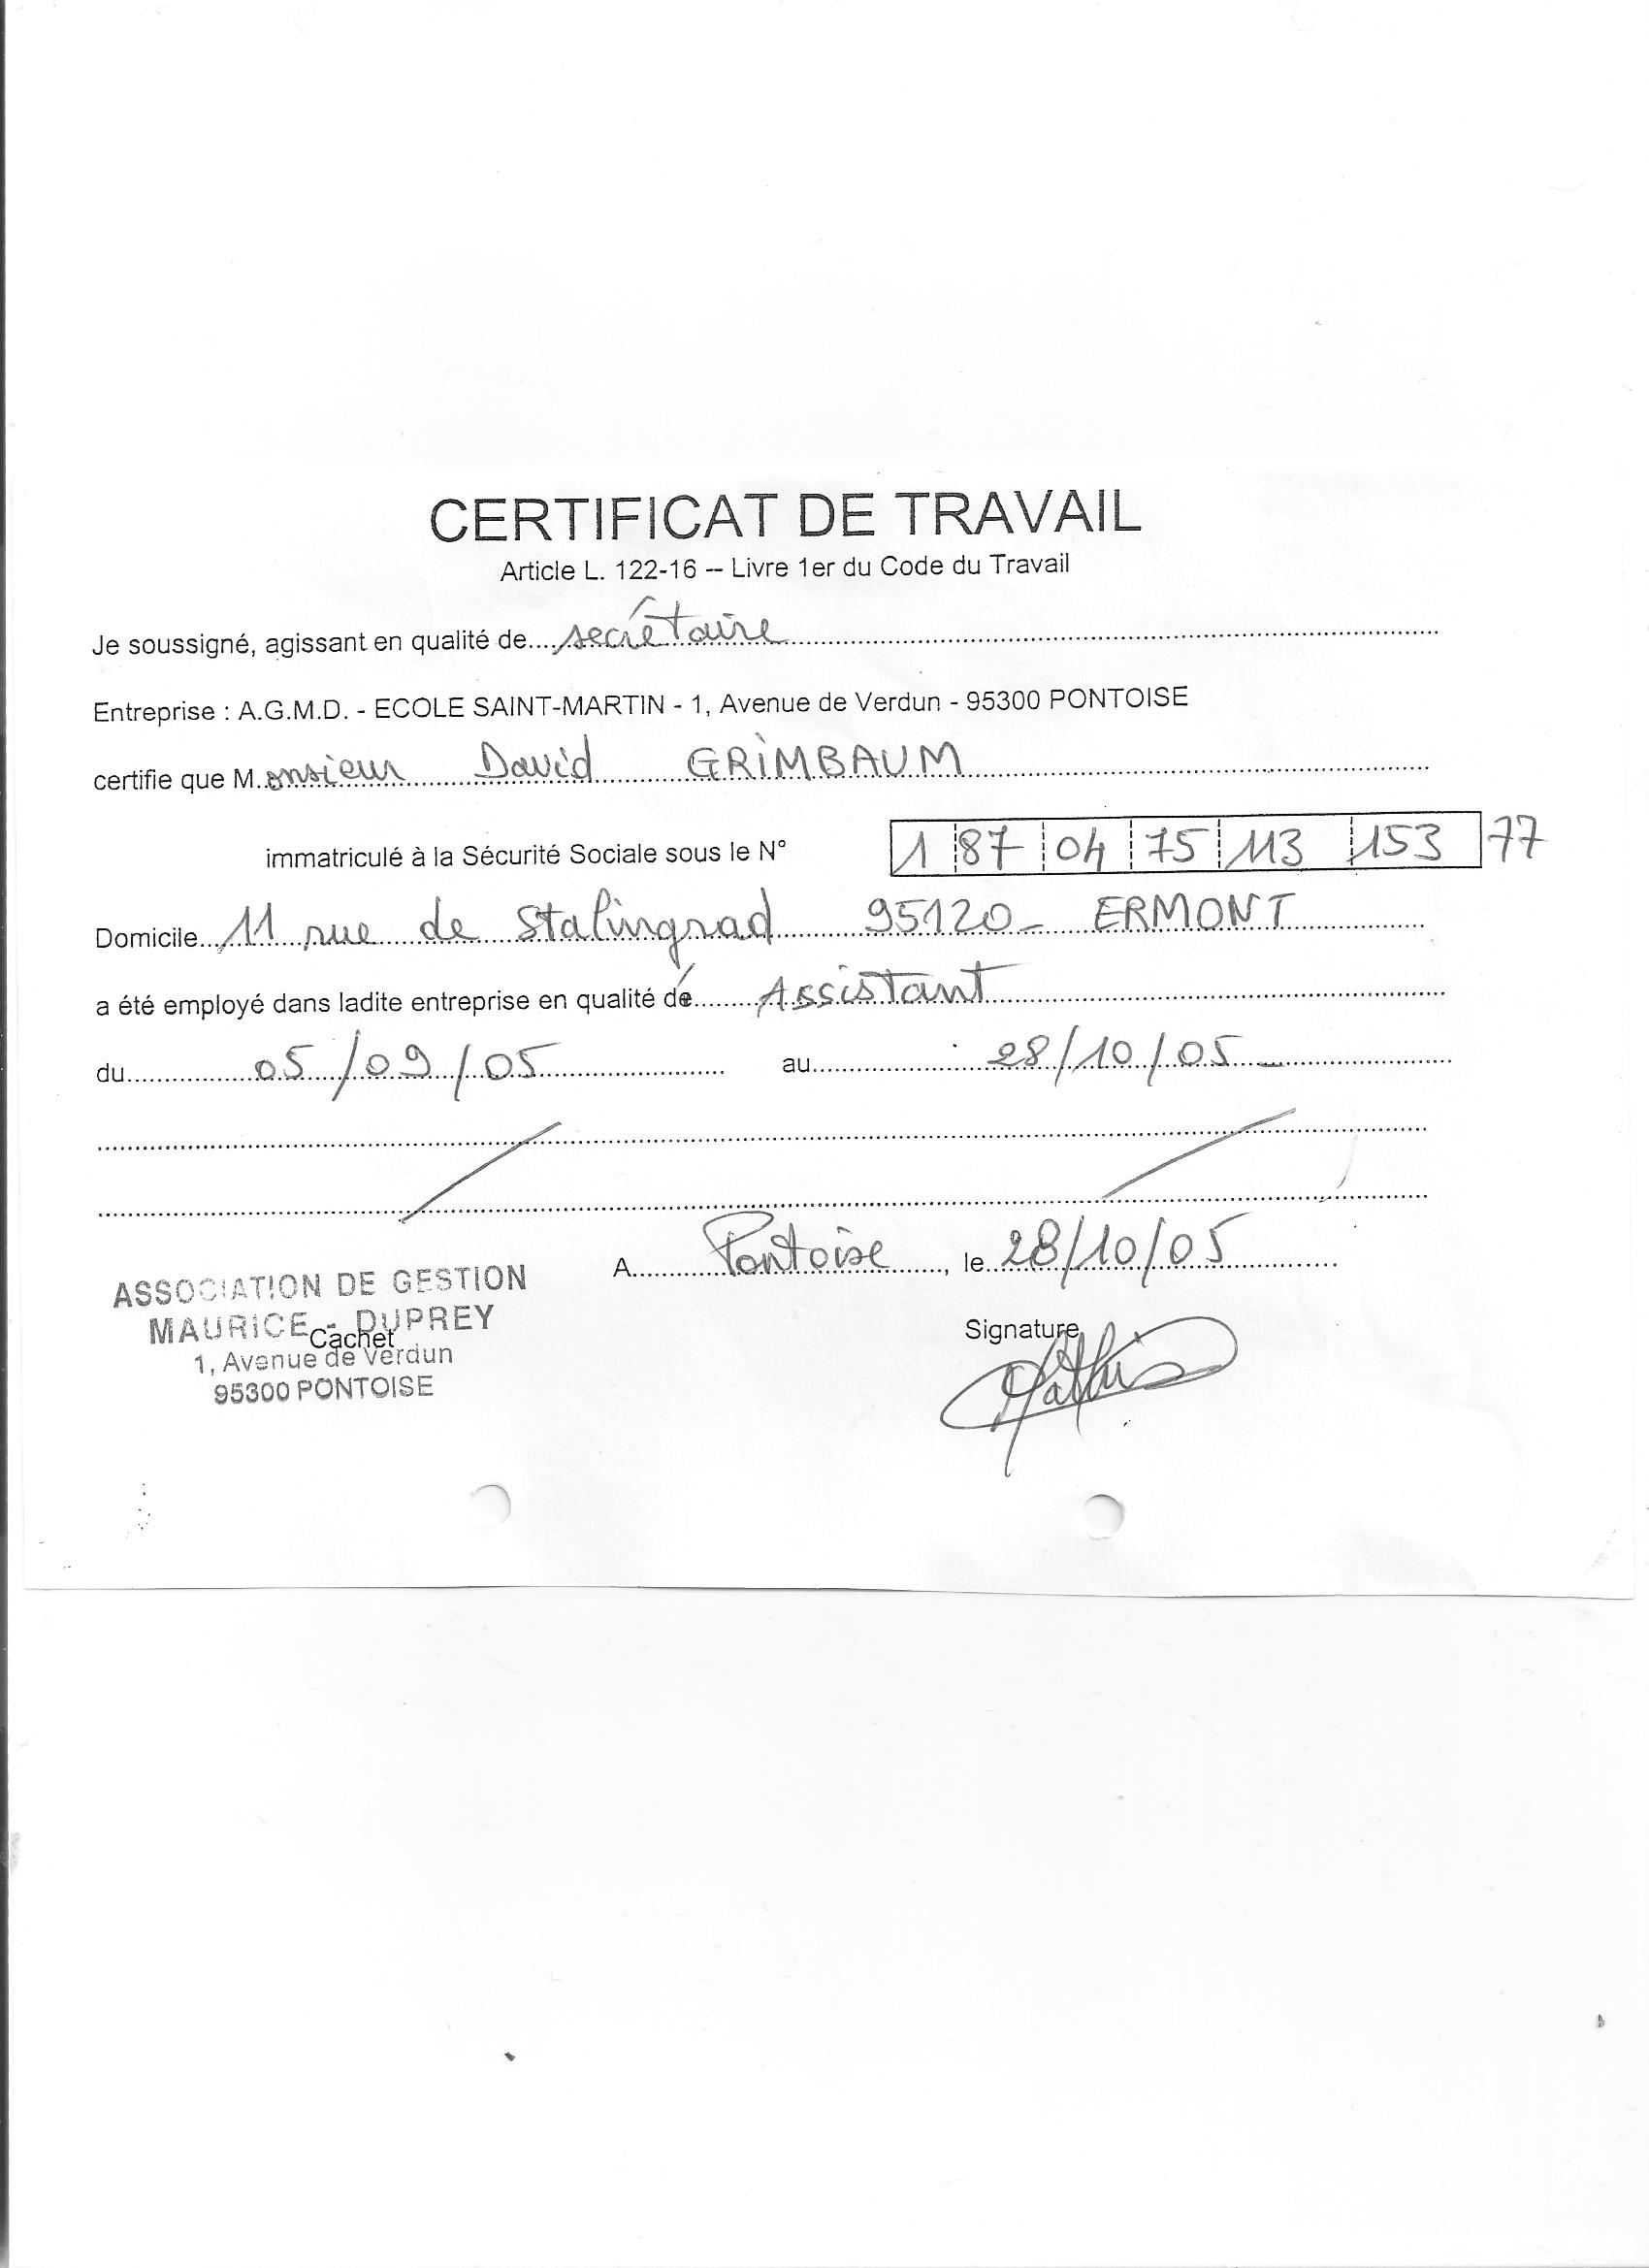 CERTIFICAT DE TRAVAIL
Article L. 122-16 -- Livre 1er du Code du Travail
Je soussigné, agissant en qualité de secrétaire
Entreprise : A.G.M.D. - ECOLE SAINT-MARTIN - 1, Avenue de Verdun - 95300 PONTOISE
certifie que Monsieur David GRIMBAUM
immatriculé à la Sécurité Sociale sous le N° 1 87 04 75 113 153 77
Domicile 11 rue de Stalingrad 95120 - ERMONT
a été employé dans ladite entreprise en qualité dé Assistant
du 05/09/05 au 28/10/05
A Pontoise, le 28/10/05
ASSOCIATION DE GESTION
MAURICE - DUPREY
Cachet
1, Avenue de Verdun
95300 PONTOISE
Signature